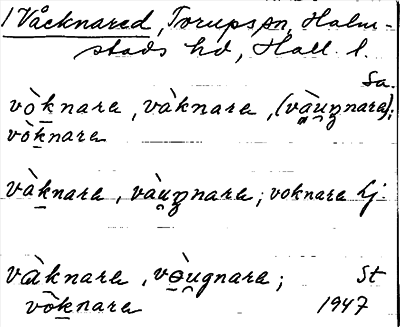 1 Våcknared, Torups sn, Halm-
stads hd, Hall. l.
Sa.
vò̀knara, vàknara, (vàu̯ŋnara);
vòknara
vàknara, vàu̯ŋnara; voknara Lj.
vàknara, vəùgnara; St
vòknara 1947